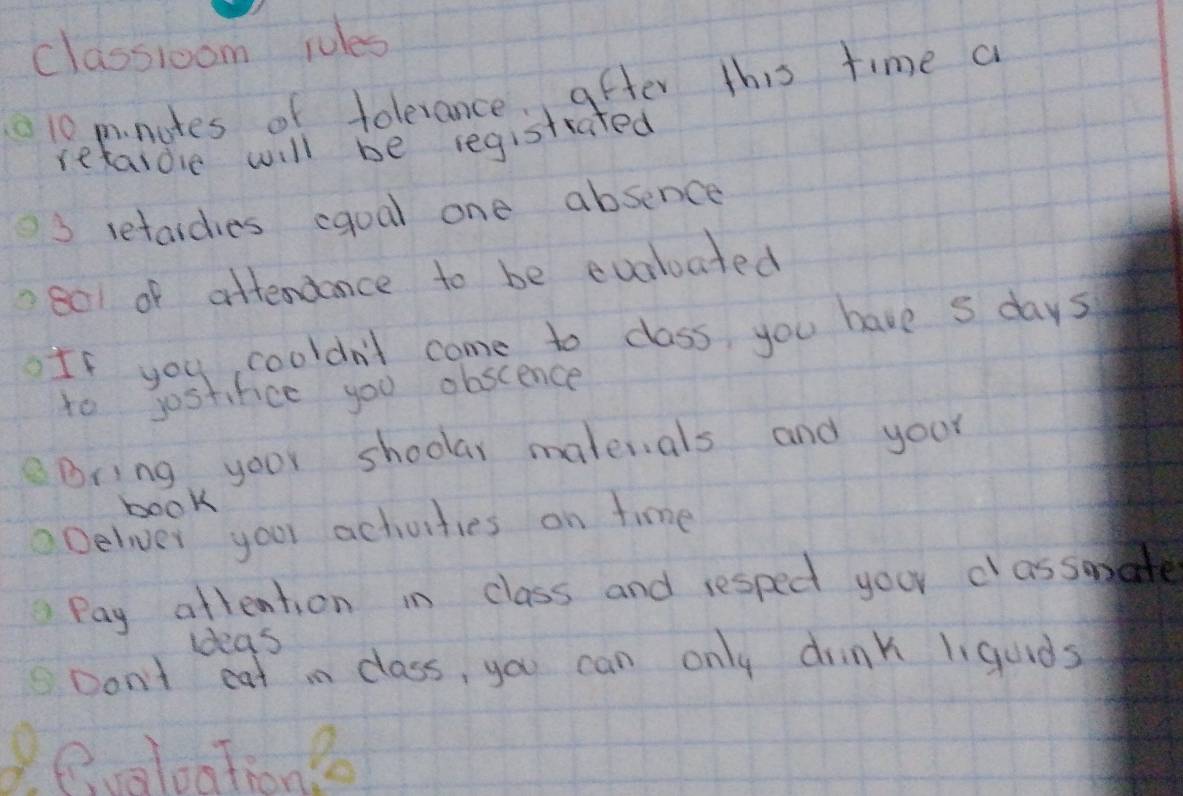 Classroom rules
10 minutes of tolerance, after this time a
retardie will be registrated
3 retardies equal one absence
80% of attendance to be evaluated
If you couldn't come to class, you have 5 days
to justifice you obscence
Bring your shoolar materials and your
book
Deliver your activities on time
Pay attention in class and respect your classmate
ideas
Don't eat in class, you can only drink liquids
Evaluation